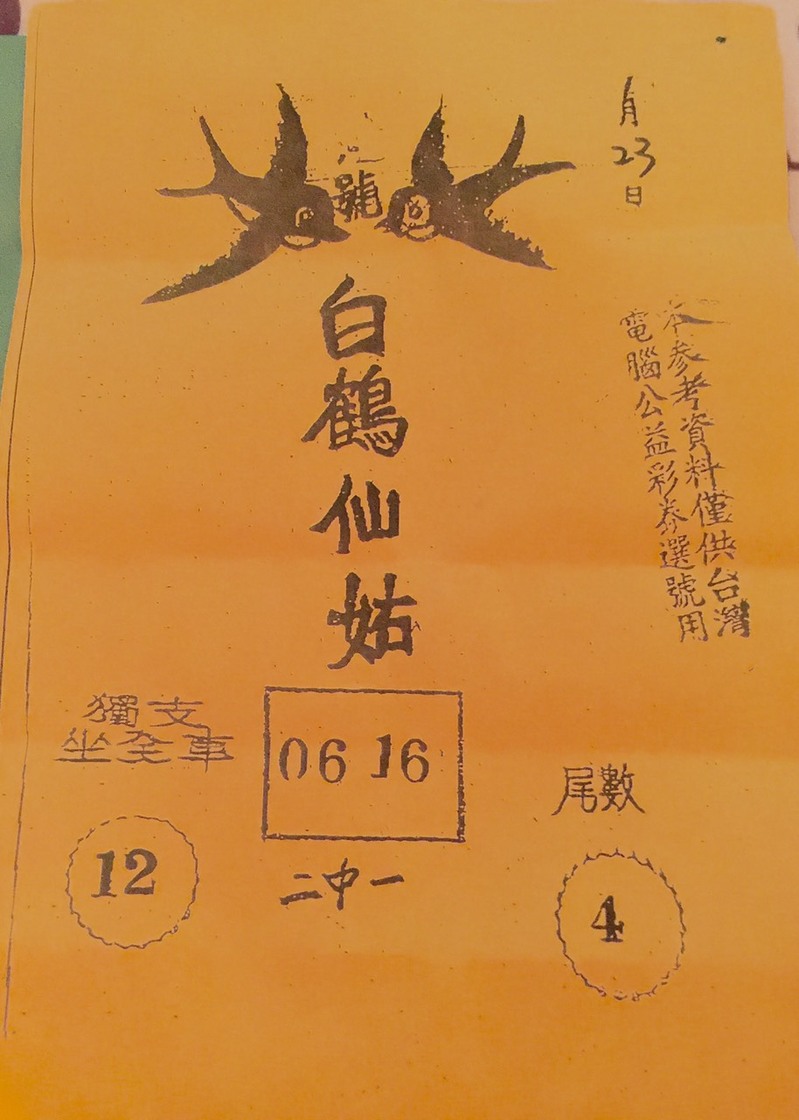 月
23
日
號
白鶴仙姑
本参考資料僅供台灣
電腦公益彩券選號用
獨支
坐全車
12
06 16
二中一
尾數
4